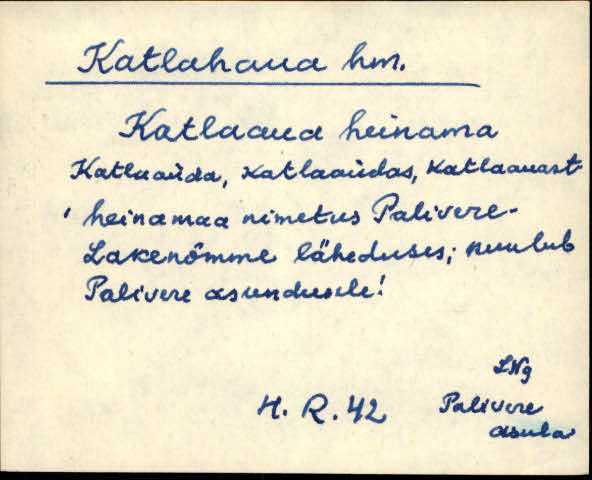 Katlahaua hm.
Katlaaua heinama
Katlaaùda, Katlaaùdas, Katlaauast
' heinamaa nimetus Palivere-
Lakenõmme läheduses; kuulub
Palivere asundusele!
LNg
H. R. 42 Palivere
asula